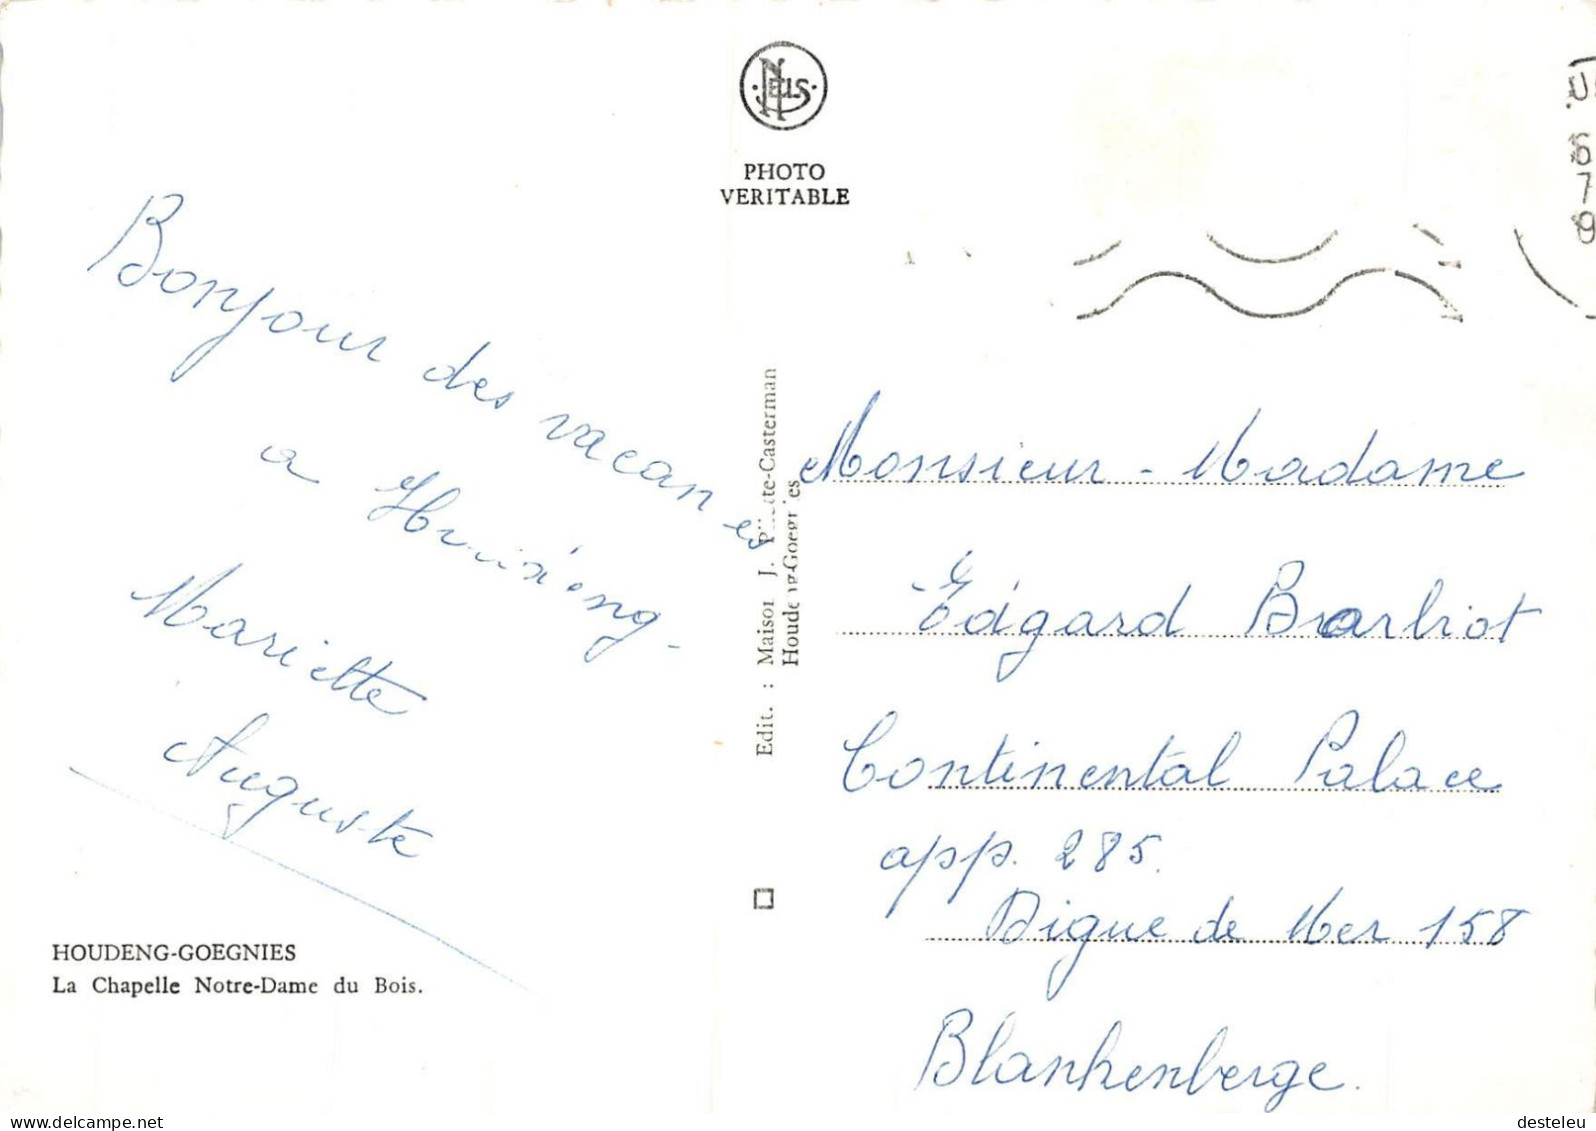 NELS
PHOTO
VERITABLE
Bonjour des vacances
a
Mariette
Auguste
HOUDENG-GOEGNIES
La Chapelle Notre-Dame du Bois.
Edit. : Maison J. -Casterman
Houdeng-Goegnies
Monsieur - Madame
Edgard
Continental Palace
app. 285.
Digue de Mer 158
Blankenberge.
desteleu